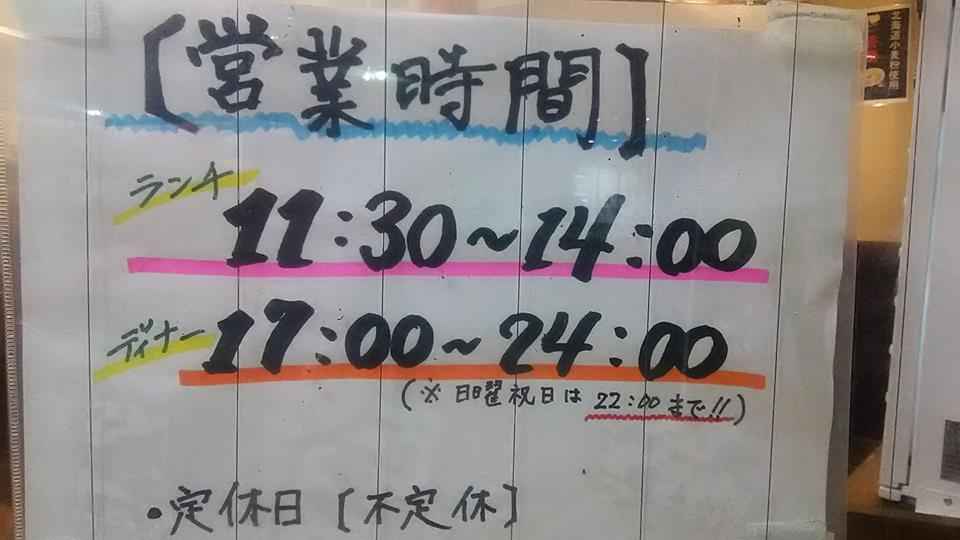 [営業時間]
ランチ
11:30~14:00
ディナー
17:00~24:00
(※日曜祝日は22:00まで!!)
・定休日[不定休]
北海道小麦粉使用